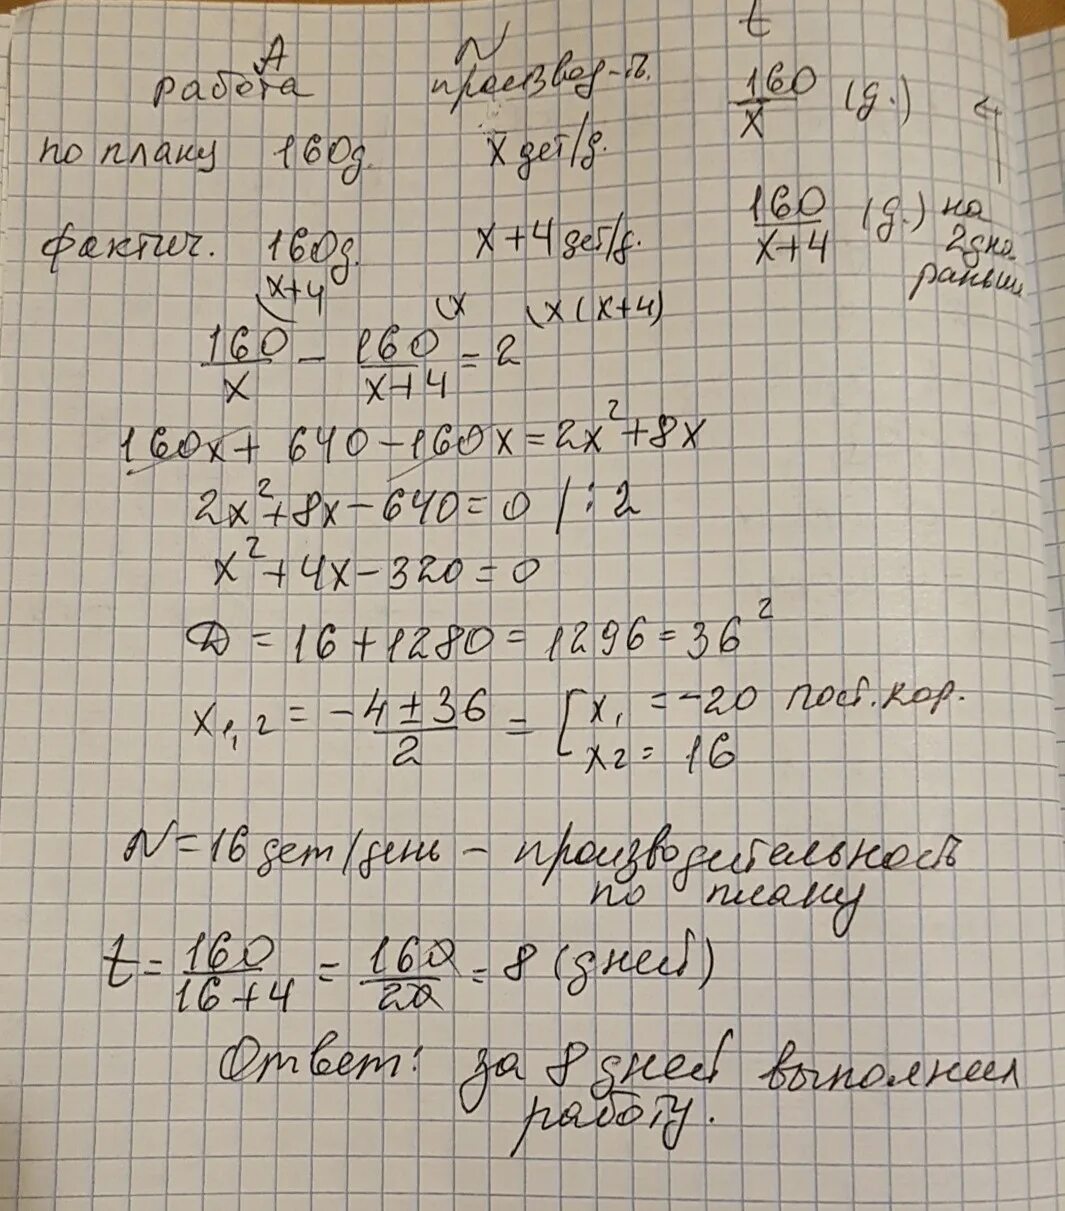 A N t
работа производ-ть. 160/x (д.)
по плану 160д. x дет/д.
фактич. 160д. x+4 дет/д. 160/(x+4) (д.) на
2 дня
раньше
x+4 x x(x+4)
160/x - 160/(x+4) = 2
160x + 640 - 160x = 2x² + 8x
2x² + 8x - 640 = 0 /:2
x² + 4x - 320 = 0
D = 16 + 1280 = 1296 = 36²
x1,2 = (-4 ± 36)/2 = [ x₁ = -20 пост. кор.
x2 = 16
N = 16 дет/день - производительность
по плану
t = 160/(16+4) = 160/20 = 8 (дней)
Ответ: за 8 дней выполнил
работу.